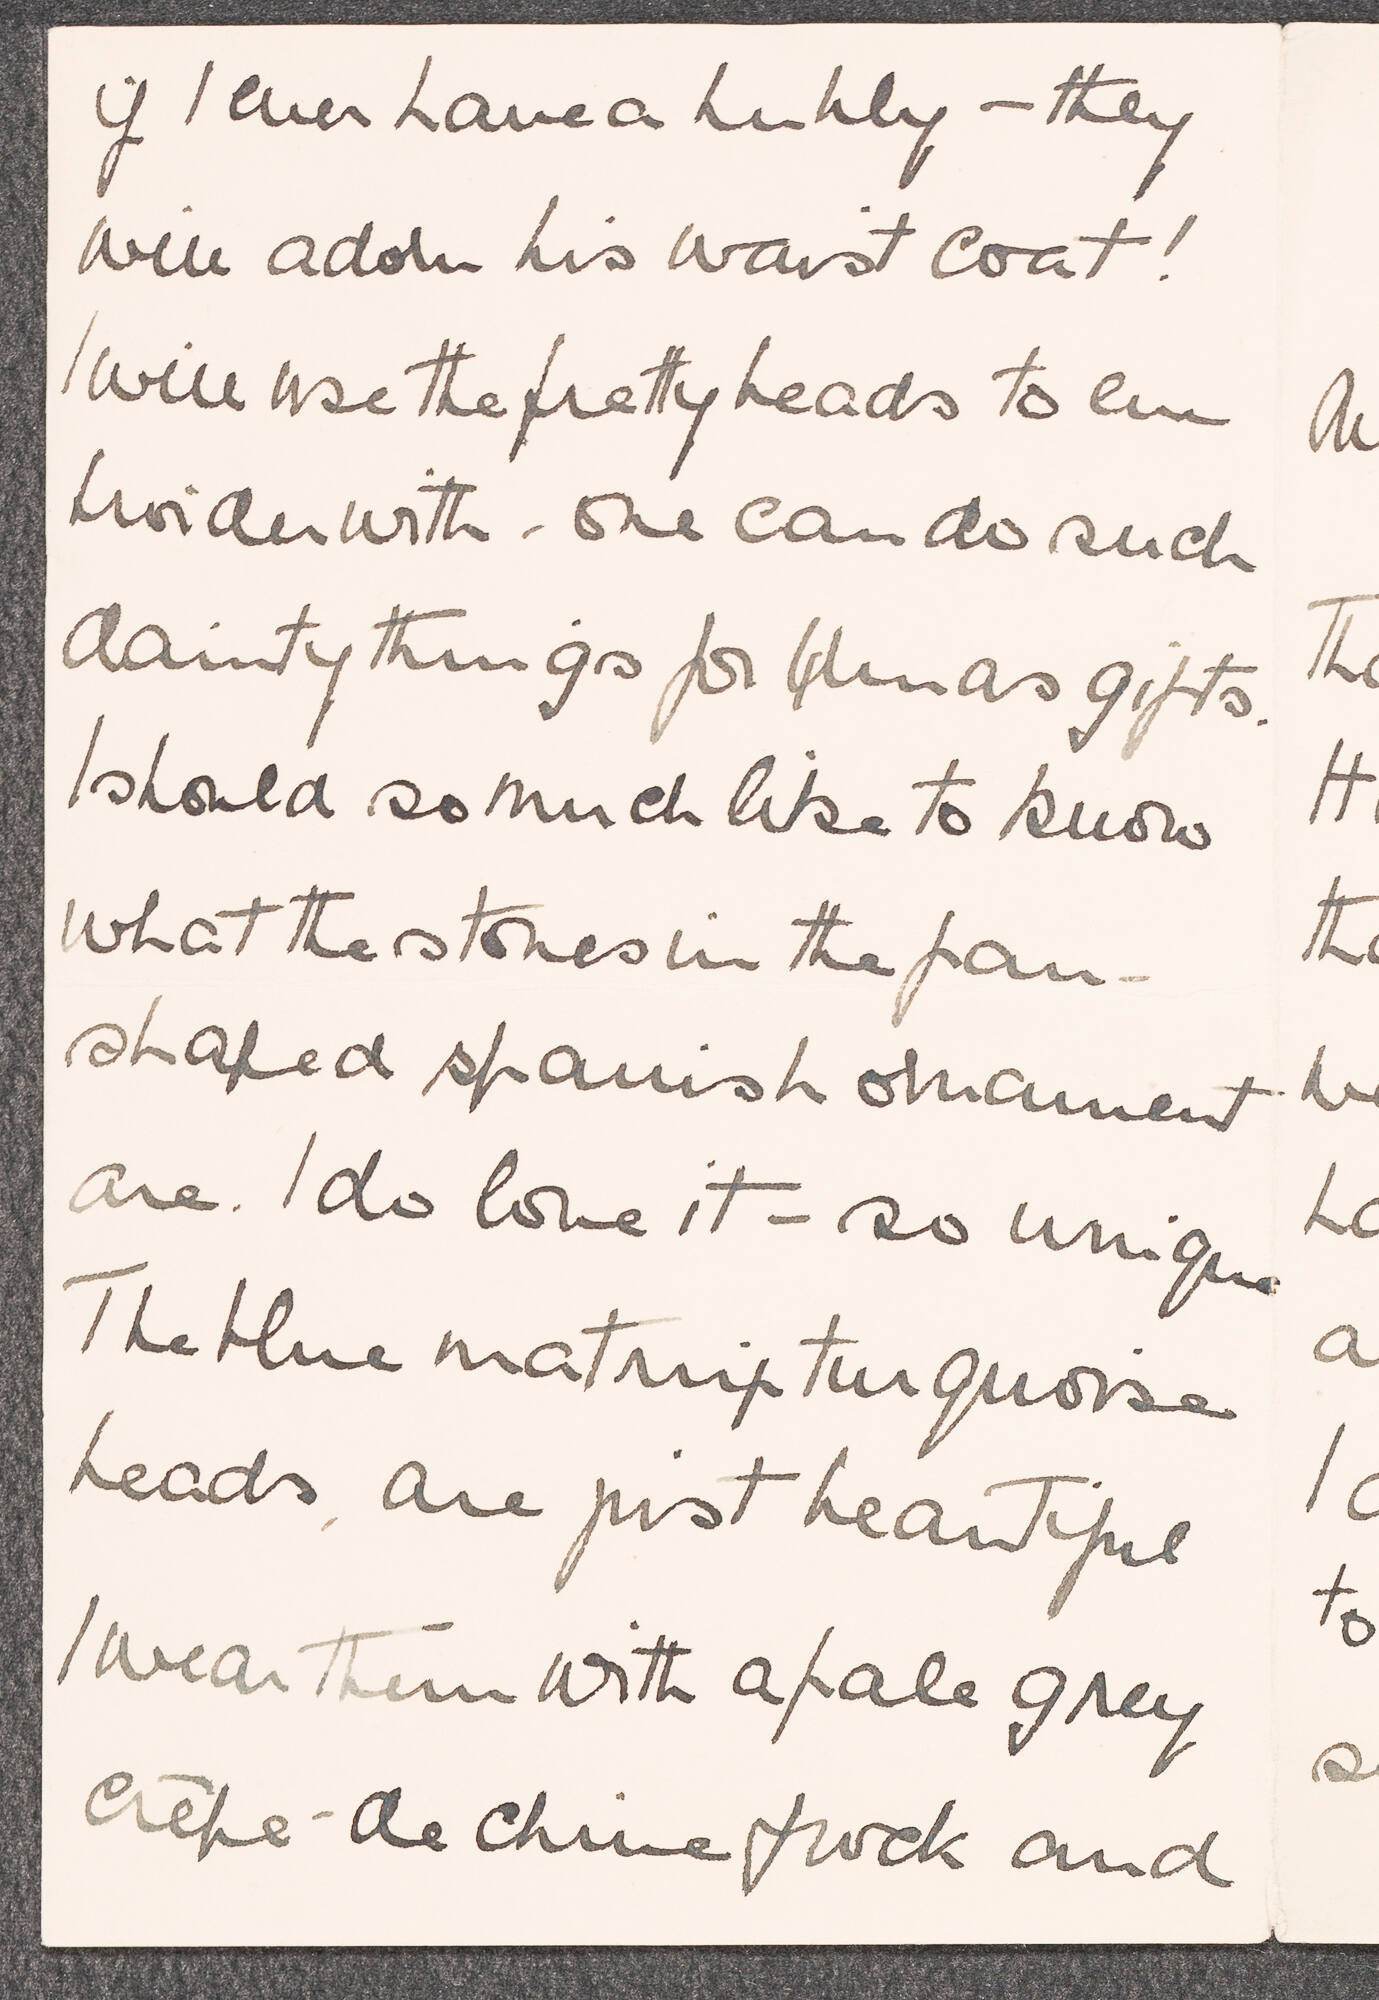 if I ever have a hubby – they
will adorn his waist coat!
I will use the pretty beads to em
broider with - one can do such
dainty things for Xmas gifts.
I should so much like to know
what the stones in the fan-
shaped spanish ornament
are. I do love it – so unique
The blue matrix turquoise
beads, are just beautiful
I wear them with a pale grey
crêpe-de chine frock and